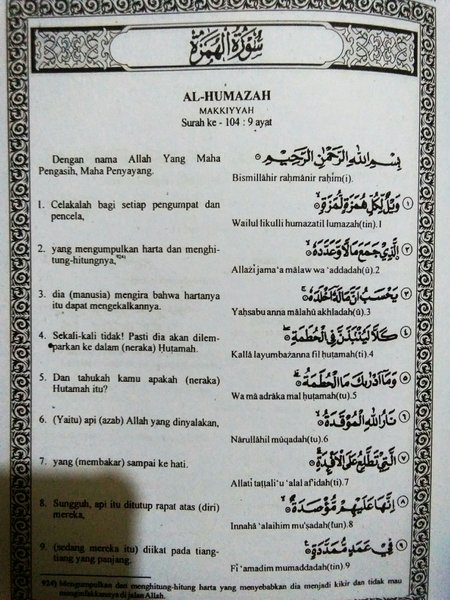 سُوْرَةُ الْهُمَزَةِ
AL-HUMAZAH
MAKKIYYAH
Surah ke - 104 : 9 ayat
Dengan nama Allah Yang Maha
Pengasih, Maha Penyayang.
بِسْمِ اللهِ الرَّحْمٰنِ الرَّحِيْمِ
Bismillāhir raḥmānir raḥīm(i).
1. Celakalah bagi setiap pengumpat dan
pencela,
وَيْلٌ لِّكُلِّ هُمَزَةٍ لُّمَزَةٍۙ ١
Wailul likulli humazatil lumazah(tin).1
2. yang mengumpulkan harta dan menghi-
tung-hitungnya,⁹²⁴⁾
ࣙالَّذِيْ جَمَعَ مَالًا وَّعَدَّدَهٗۙ ٢
Allażī jama‘a mālaw wa ‘addadah(ū).2
3. dia (manusia) mengira bahwa hartanya
itu dapat mengekalkannya.
يَحْسَبُ اَنَّ مَالَهٗٓ اَخْلَدَهٗۚ ٣
Yaḥsabu anna mālahū akhladah(ū).3
4. Sekali-kali tidak! Pasti dia akan dilem-
parkan ke dalam (neraka) Ḥuṭamah.
كَلَّا لَيُنْۢبَذَنَّ فِى الْحُطَمَةِۖ ٤
Kallā layumbażanna fil ḥuṭamah(ti).4
5. Dan tahukah kamu apakah (neraka)
Ḥuṭamah itu?
وَمَآ اَدْرٰىكَ مَا الْحُطَمَةُۗ ٥
Wa mā adrāka mal ḥuṭamah(tu).5
6. (Yaitu) api (azab) Allah yang dinyalakan,
نَارُ اللهِ الْمُوْقَدَةُۙ ٦
Nārullāhil mūqadah(tu).6
7. yang (membakar) sampai ke hati.
الَّتِيْ تَطَّلِعُ عَلَى الْاَفْـِٕدَةِۗ ٧
Allatī taṭṭali‘u ‘alal af'idah(ti).7
8. Sungguh, api itu ditutup rapat atas (diri)
mereka,
اِنَّهَا عَلَيْهِمْ مُّؤْصَدَةٌۙ ٨
Innahā ‘alaihim mu'ṣadah(tun).8
9. (sedang mereka itu) diikat pada tiang-
tiang yang panjang.
فِيْ عَمَدٍ مُّمَدَّدَةٍ ٩
Fī ‘amadim mumaddadah(tin).9
924) Mengumpulkan dan menghitung-hitung harta yang menyebabkan dia menjadi kikir dan tidak mau
menginfakkannya di jalan Allah.